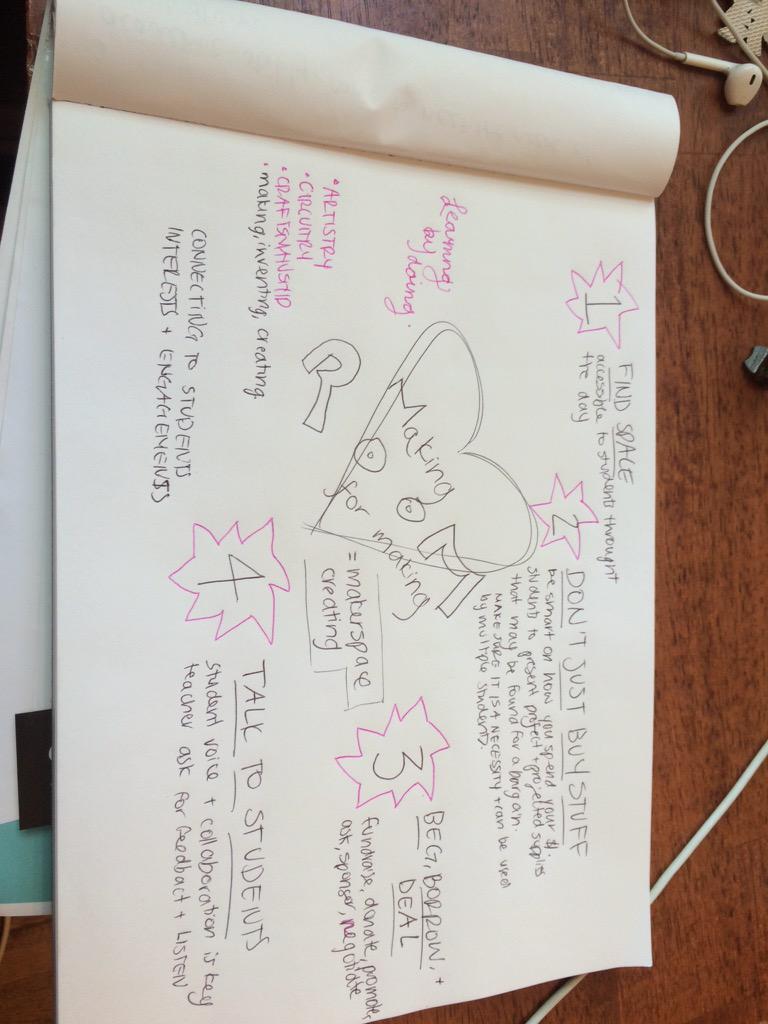 Learning
by doing.
• ARTISTRY
• CIRCUITRY
• CRAFTSMANSHIP
• making, inventing, creating
CONNECTING TO STUDENTS
INTERESTS + ENGAGEMENTS
Making
for making
= makerspace
creating
1
FIND SPACE
accessible to students throught
the day
2
DON'T JUST BUY STUFF
be smart on how you spend your $.
students to present project + projected supplies
that may be found for a bargain.
MAKE SURE IT IS A NECESSITY + can be used
by multiple students.
3
BEG, BORROW, +
DEAL
fundraise, donate, promote,
ask, sponsor, negotiate
4
TALK TO STUDENTS
student voice + collaboration is key
teacher ask for feedback + LISTEN